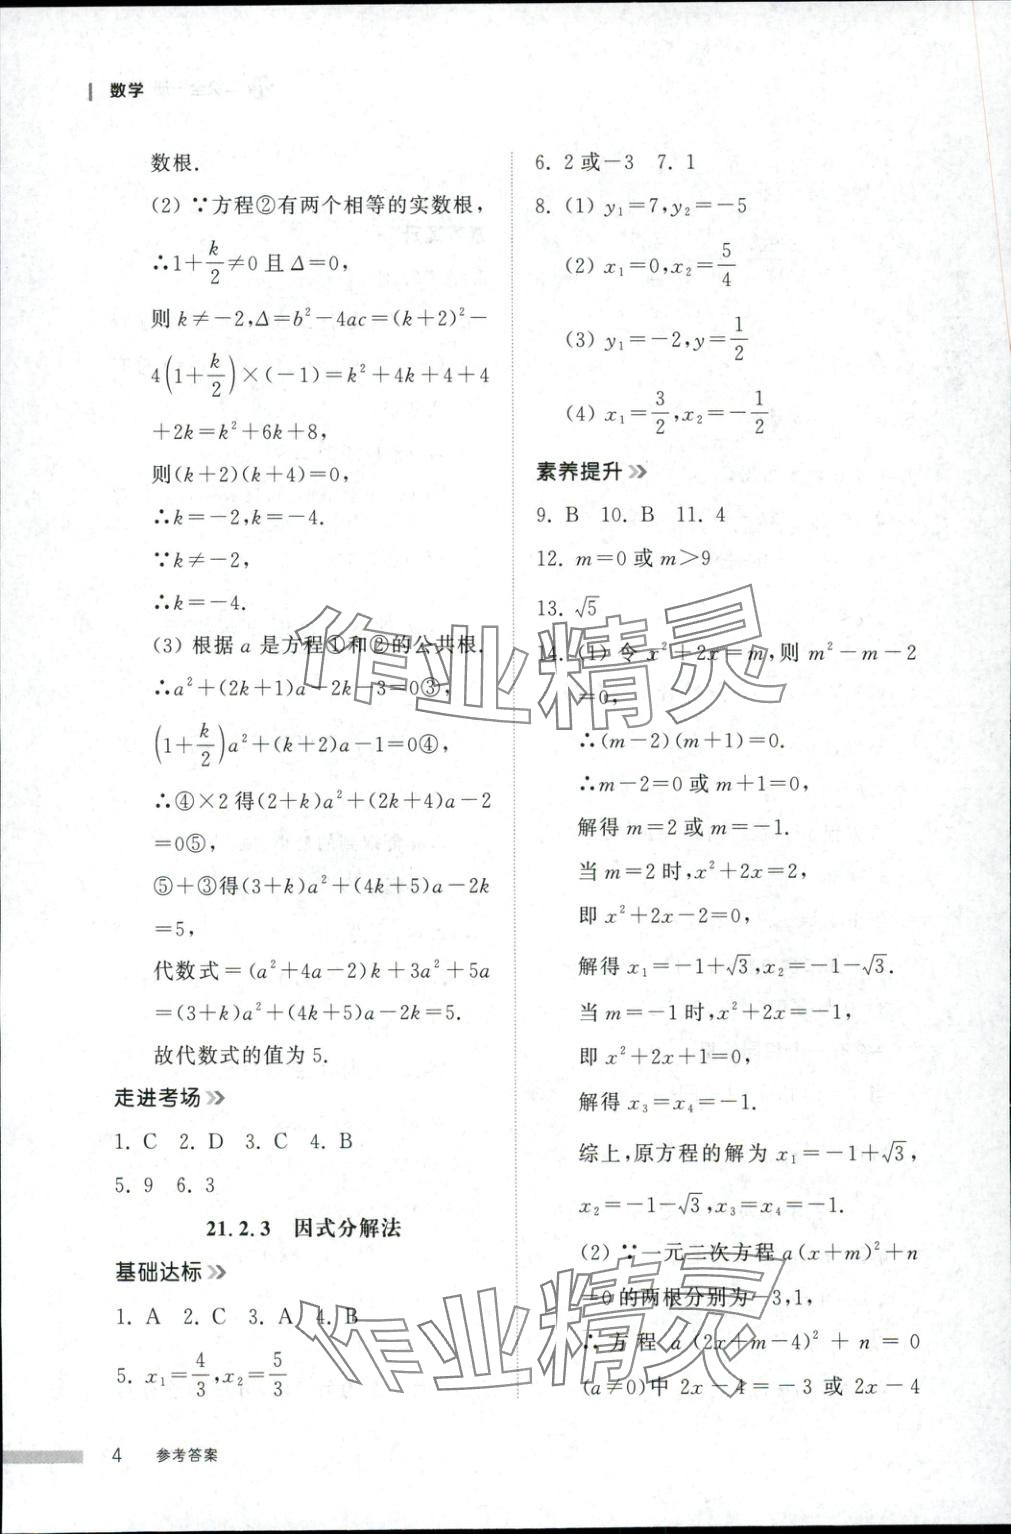 数学
数根.
(2) ∵方程②有两个相等的实数根,
∴1+k/2≠0 且 Δ=0,
则 k≠-2,Δ=b²-4ac=(k+2)²-
4(1+k/2)×(-1)=k²+4k+4+4
+2k=k²+6k+8,
则(k+2)(k+4)=0,
∴k=-2,k=-4.
∵k≠-2,
∴k=-4.
(3) 根据 a 是方程①和②的公共根.
∴a²+(2k+1)a-2k-3=0③,
(1+k/2)a²+(k+2)a-1=0④,
∴④×2得(2+k)a²+(2k+4)a-2
=0⑤,
⑤+③得(3+k)a²+(4k+5)a-2k
=5,
代数式=(a²+4a-2)k+3a²+5a
=(3+k)a²+(4k+5)a-2k=5.
故代数式的值为 5.
走进考场
1. C 2. D 3. C 4. B
5. 9 6. 3
21.2.3 因式分解法
基础达标
1. A 2. C 3. A 4. B
5. x₁=4/3,x₂=5/3
6. 2 或-3 7. 1
8. (1) y₁=7,y₂=-5
(2) x₁=0,x₂=5/4
(3) y₁=-2,y=1/2
(4) x₁=3/2,x₂=-1/2
素养提升
9. B 10. B 11. 4
12. m=0 或 m>9
13. √5
14. (1) 令 x²+2x=m,则 m²-m-2
=0,
∴(m-2)(m+1)=0.
∴m-2=0 或 m+1=0,
解得 m=2 或 m=-1.
当 m=2 时,x²+2x=2,
即 x²+2x-2=0,
解得 x₁=-1+√3,x₂=-1-√3.
当 m=-1 时,x²+2x=-1,
即 x²+2x+1=0,
解得 x₃=x₄=-1.
综上,原方程的解为 x₁=-1+√3,
x₂=-1-√3,x₃=x₄=-1.
(2) ∵一元二次方程 a(x+m)²+n
=0 的两根分别为-3,1,
∴方程 a(2x+m-4)²+n=0
(a≠0)中 2x-4=-3 或 2x-4
4 参考答案
作业精灵
作业精灵